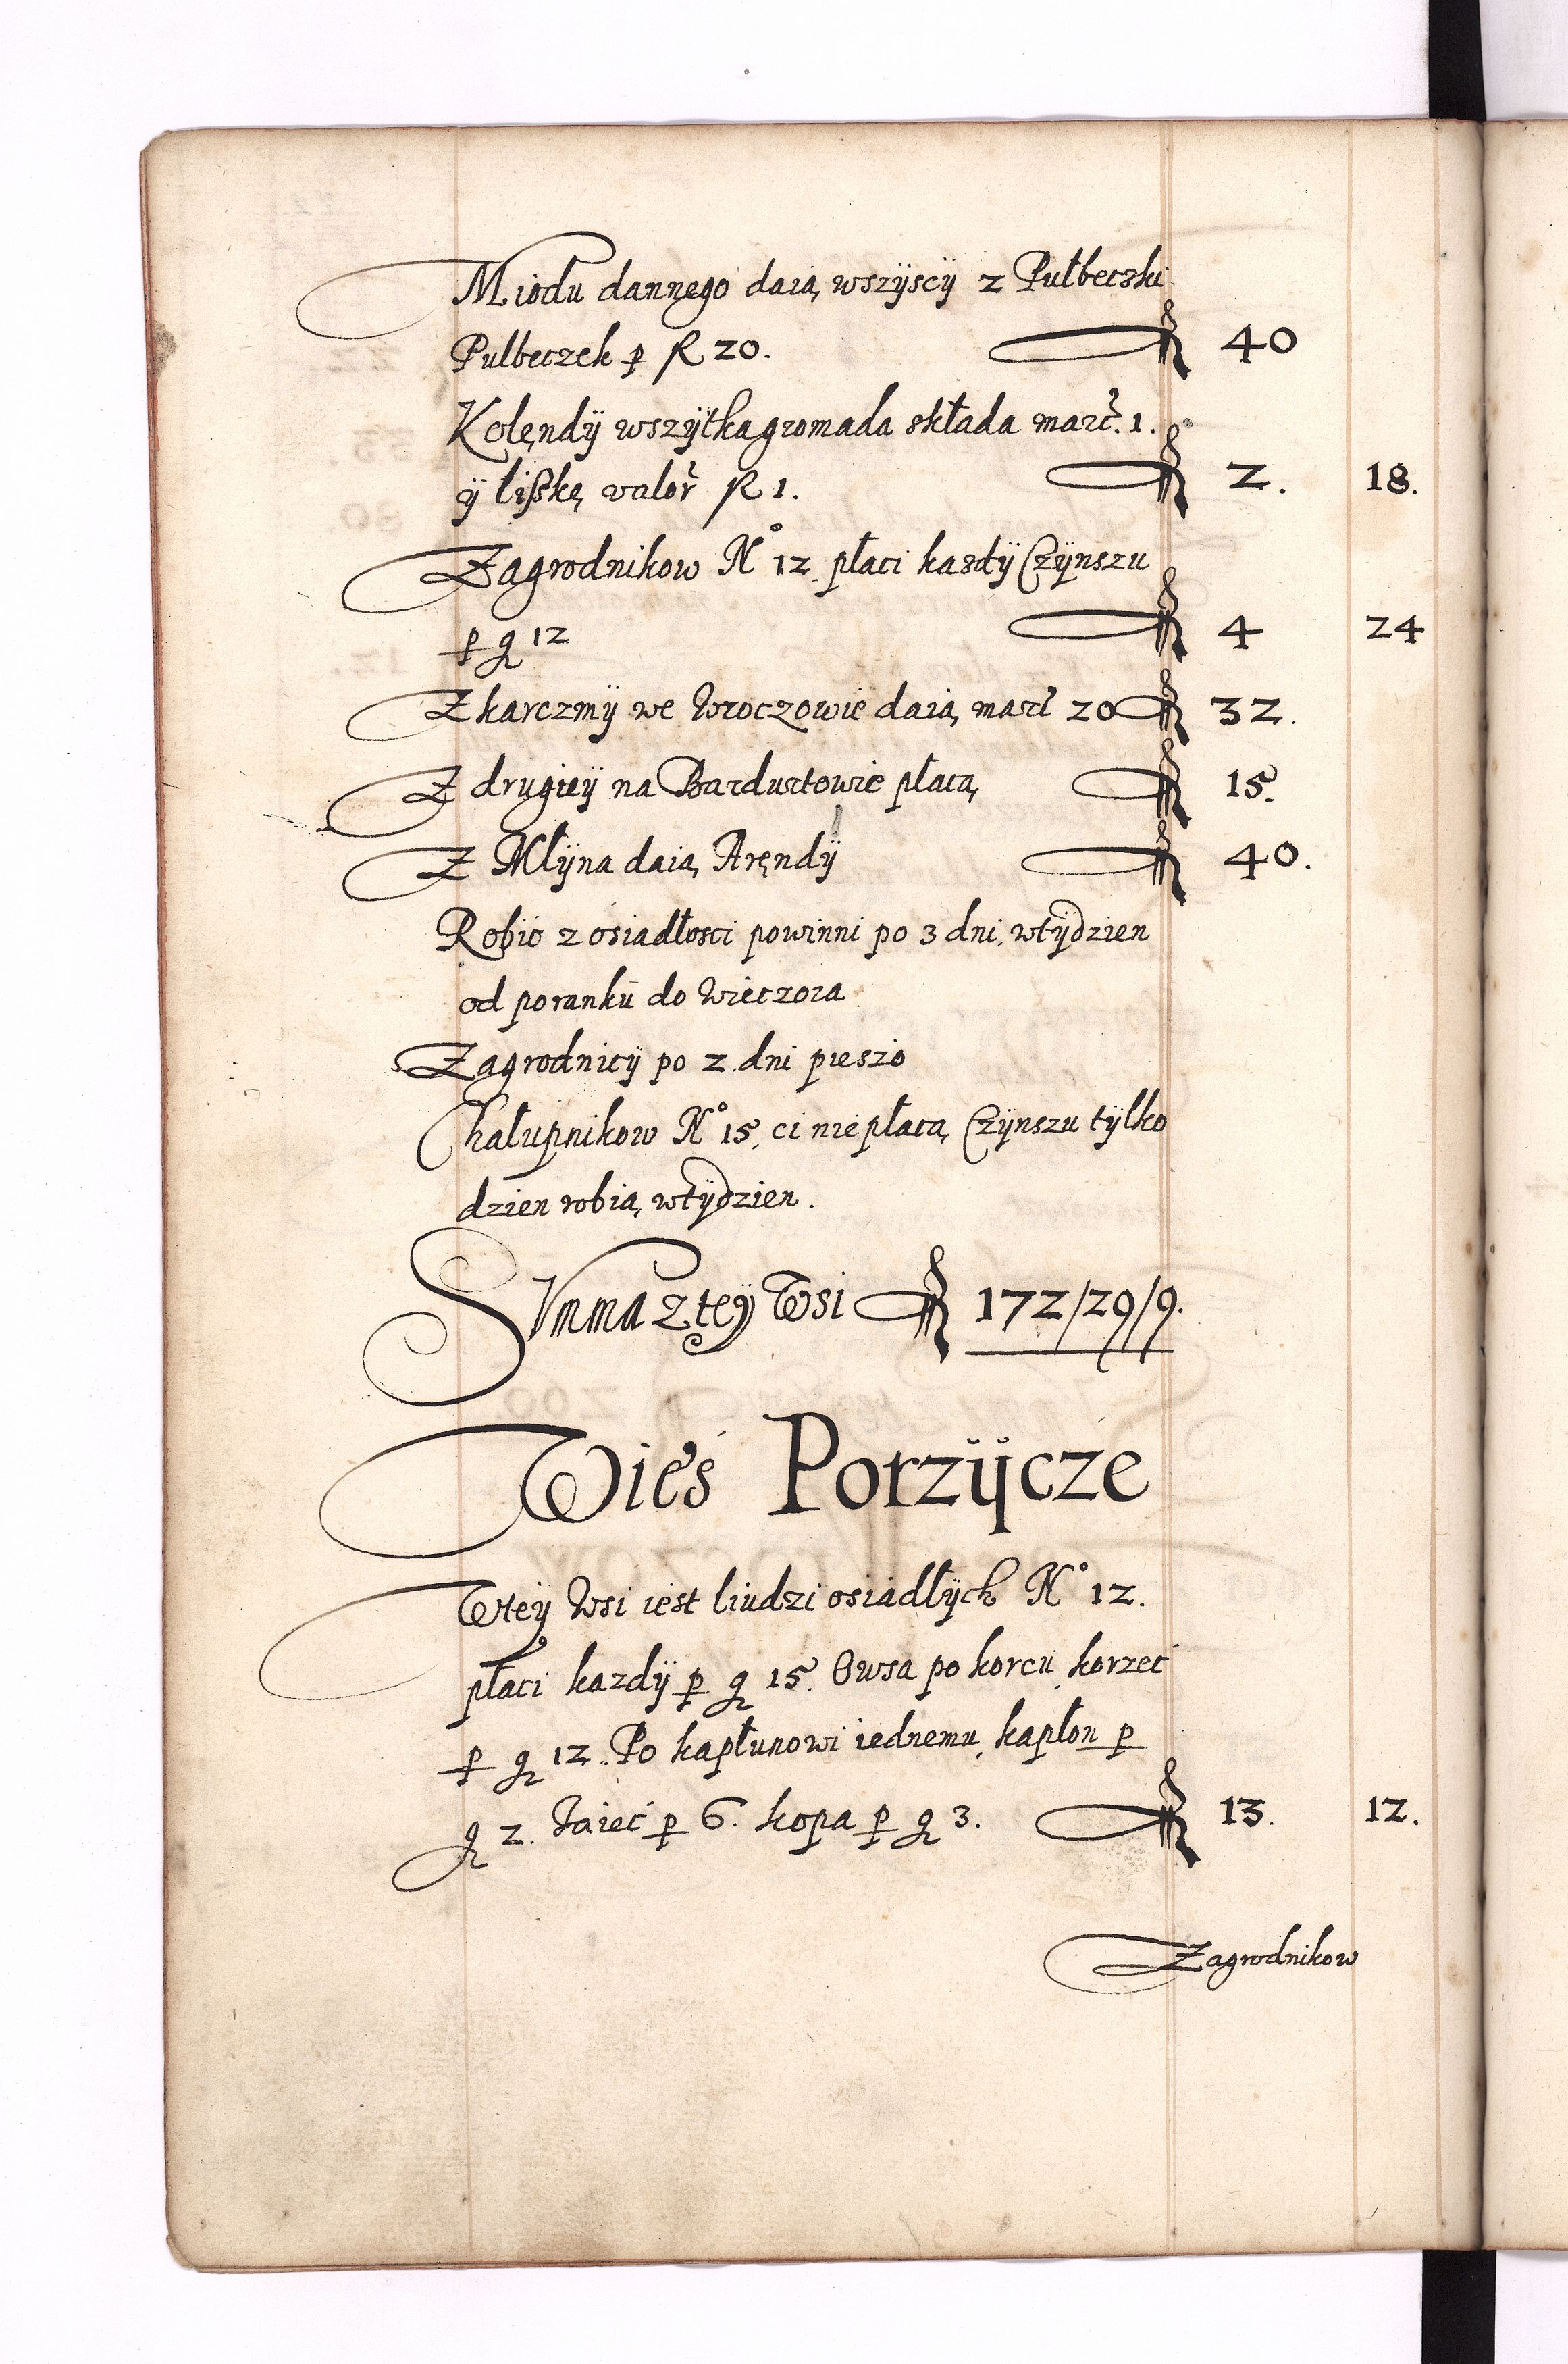 Miodu dannego daią wszÿscÿ z Pułbeczki
Pulbeczek p fl 20. fl 40
Kolendÿ wszÿtka gromada składa marc. 1.
ÿ lißkę valor fl 1. fl 2. 18.
Zagrodnikow No 12. płaci kazdÿ Czÿnszu
p g 12 fl 4 24
Z karczmÿ we Wroczowie daią marc 20 fl 32.
Z drugieÿ na Bardurtowie płacą fl 15.
Z Młÿna daią Arendÿ fl 40.
Robic z osiadłosci powinni po 3 dni wtÿdzien
od poranku do wieczora
Zagrodnicÿ po 2. dni pieszo
Chałupnikow No 15, ci nie płacą Czÿnszu tÿlko
dzien robią wtÿdzien.
Summa z teÿ Wsi fl 172/29/9.
Wies Porzÿcze
Wteÿ Wsi iest liudzi osiadłÿch No 12.
płaci kazdÿ p g 15. Owsa po korcu, korzec
p g 12. Po kapłunowi iednemu, kapłon p
g 2. Jaiec p 6. kopa p g 3. fl 13. 12.
Zagrodnikow